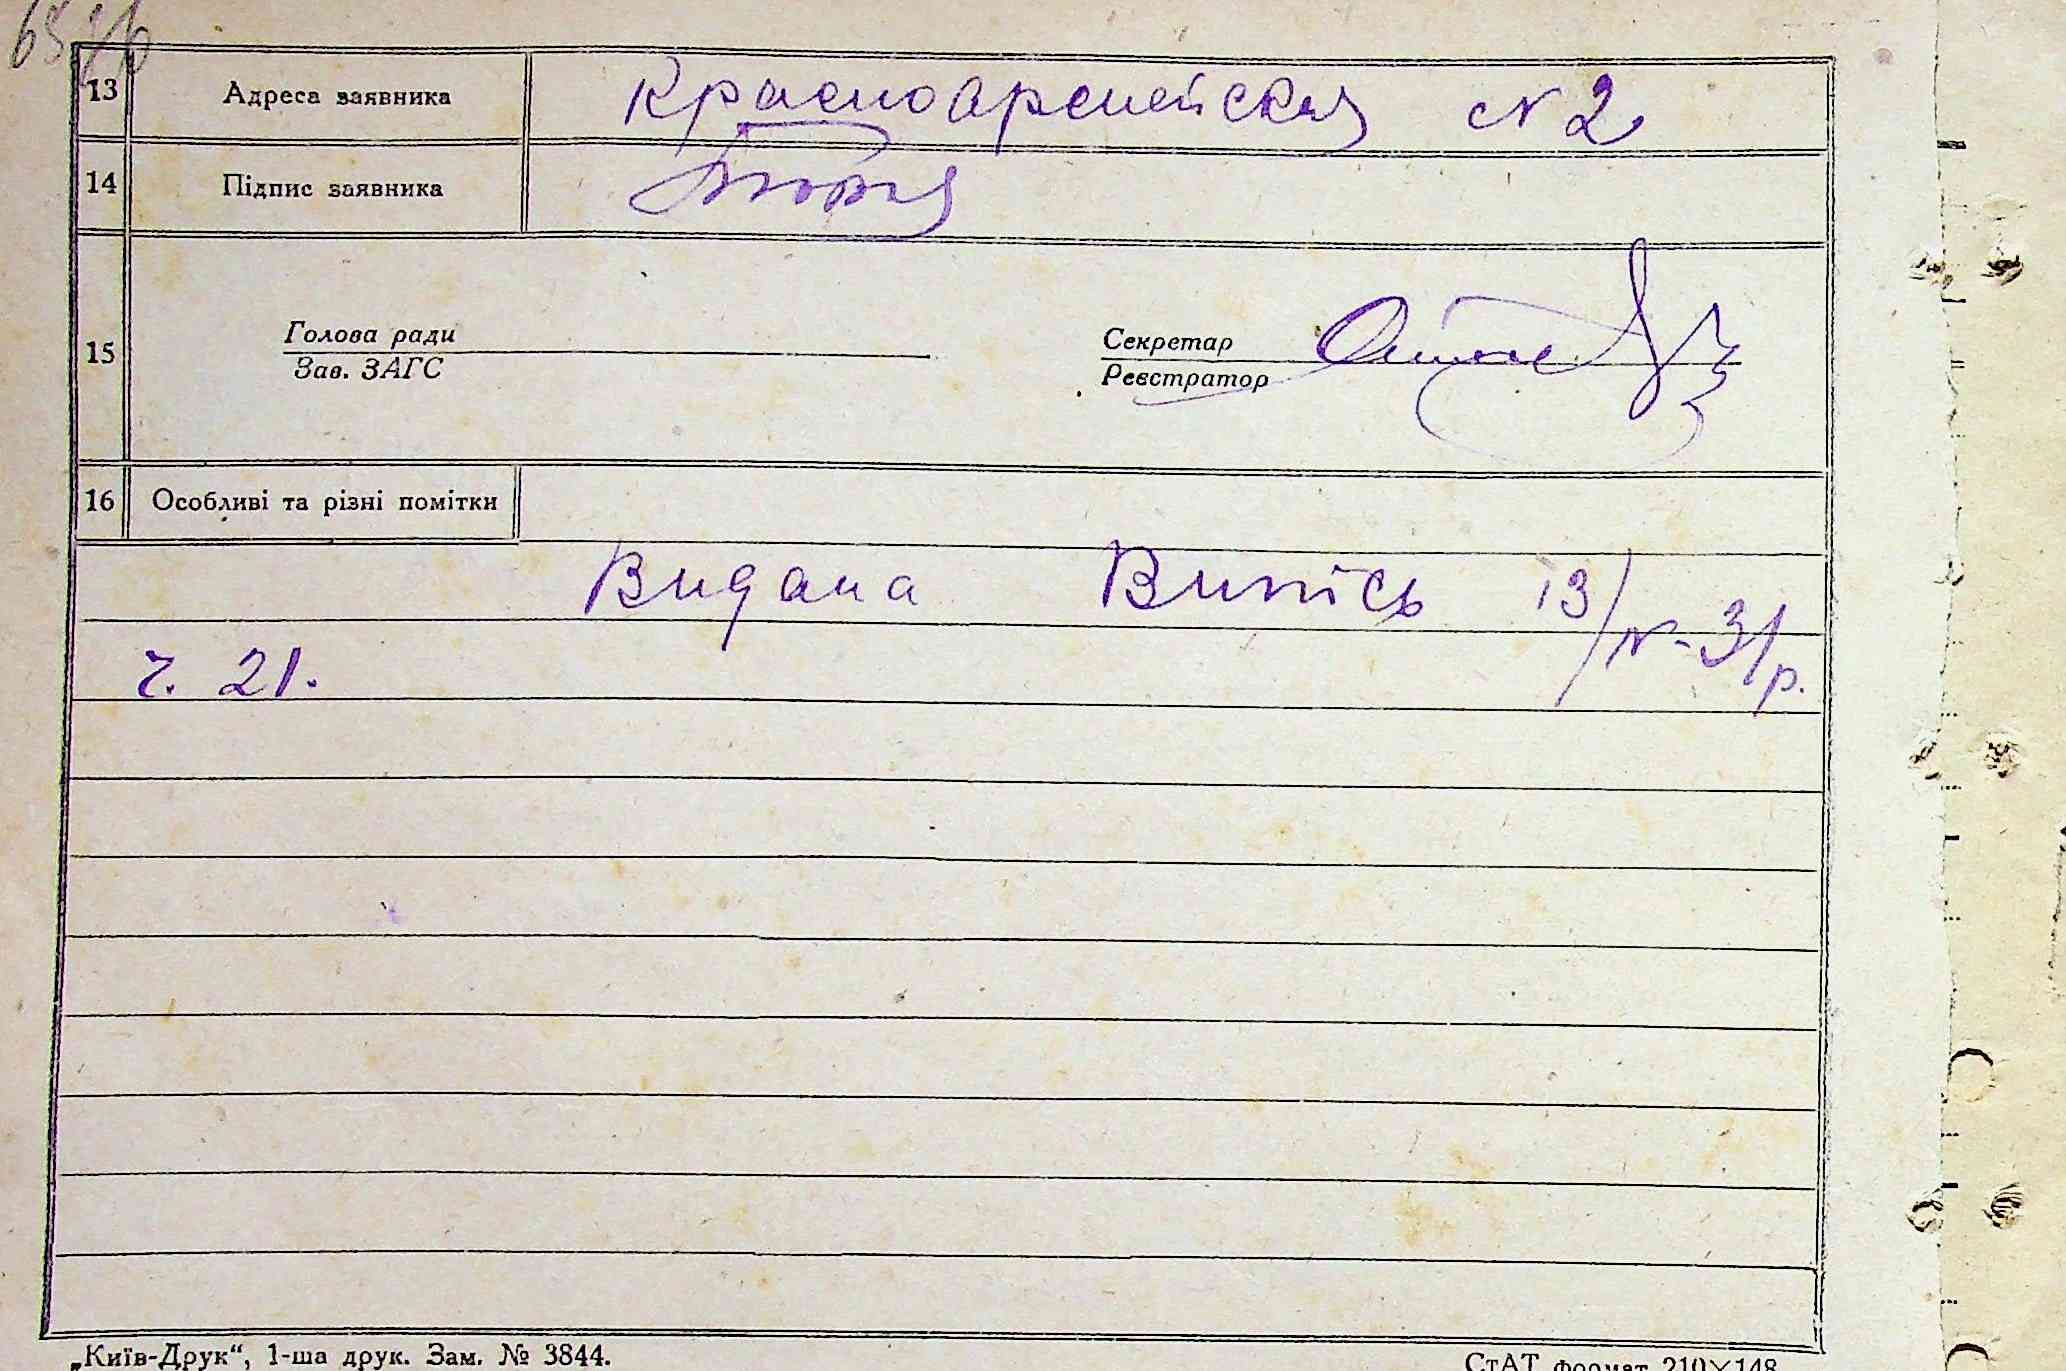 13 Адреса заявника Красноармейская № 2
14 Підпис заявника
15 Голова ради
Зав. ЗАГС
Секретар
Реєстратор
16 Особливі та різні помітки
Видана Випісь 13/IV-31р.
ч. 21.
„Київ-Друк“, 1-ша друк. Зам. № 3844.
СтАТ формат 210×148